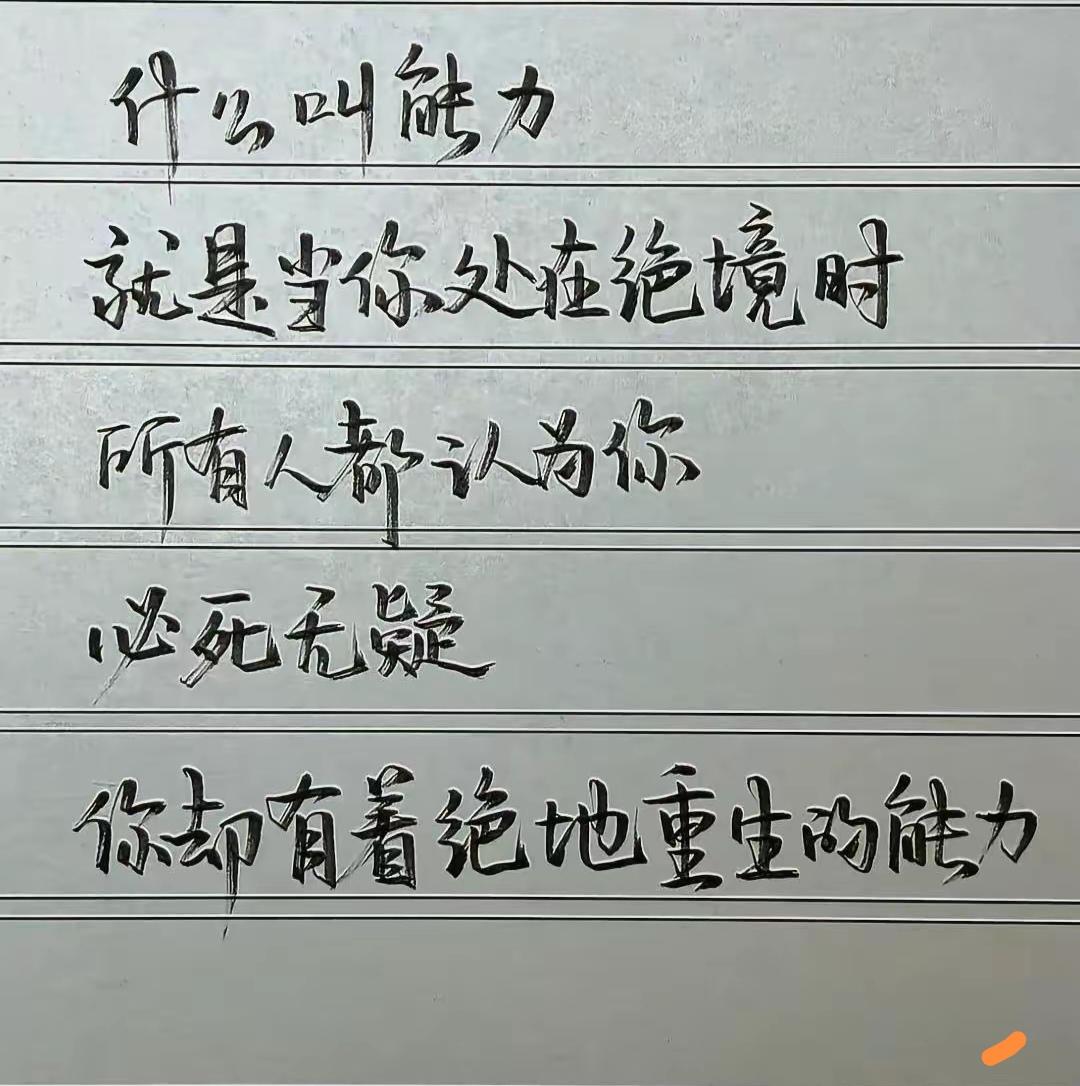 什么叫能力
就是当你处在绝境时
所有人都认为你
必死无疑
你却有着绝地重生的能力